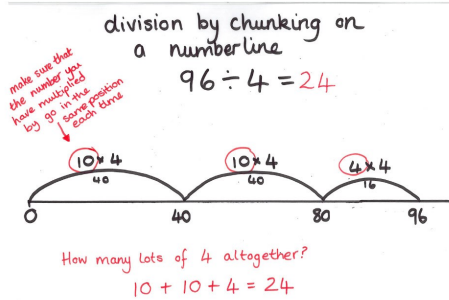 division by chunking on
a numberline
96 ÷ 4 = 24
make sure that
the number you
have multiplied
by go in the
same position
each time
10 x 4
10 x 4
4 x 4
40
40
16
0
40
80
96
How many lots of 4 altogether?
10 + 10 + 4 = 24